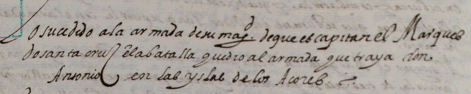 Lo sucedido a la armada de su magd de que es capitan el Marques
de santa cruz en la batalla que dio al armada que traya don
Antonio en las yslas de los Açores